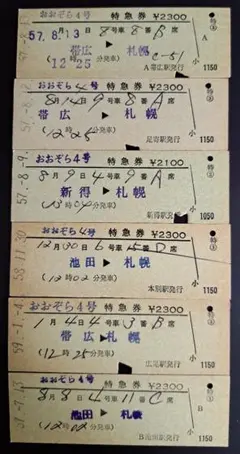 おおぞら4号 特急券 ¥2300
57.8.13 8号車 8番 B席
帯広▶札幌
(12時25分発車) C-51
A帯広駅発行 小 1150
おおぞら4号 特急券 ¥2300
8月14日 9号車 8番 A席
帯広▶札幌
(12時25分発車)
足寄駅発行 小 1150
おおぞら4号 特急券 ¥2100
57.-8.-9.
8月9日 4号車 9番 A席
新得▶札幌
(13時04分発車)
新得駅発行 小 1050
おおぞら4号 特急券 ¥2300
58.11.30
12月30日 6号車 15番 D席
池田▶札幌
(12時02分発車)
本別駅発行 小 1150
おおぞら4号 特急券 ¥2300
59.-1.-4.
1月4日 4号車 3番 B席
帯広▶札幌
(12時25分発車)
広尾駅発行 小 1150
おおぞら4号 特急券 ¥2300
8月8日 4号車 11番 C席
池田▶札幌
(12時02分発車)
B池田駅発行 小 1150